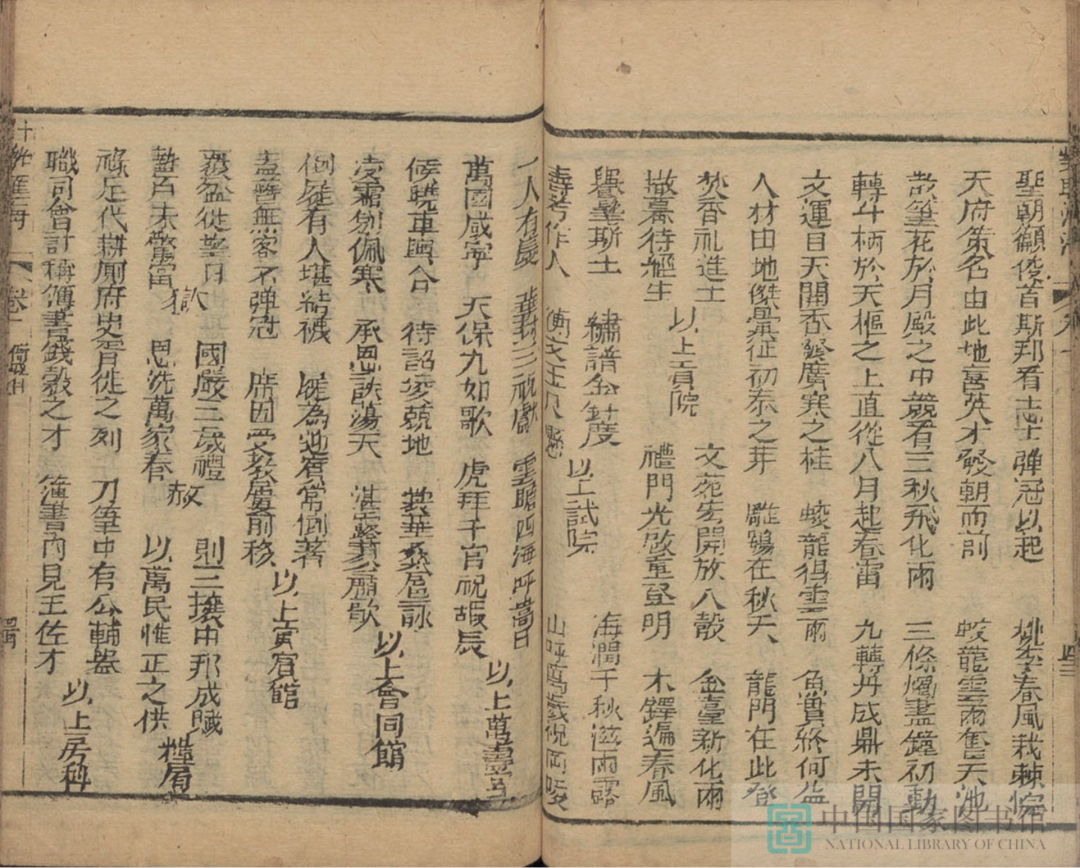 聖朝籲俊首斯邦看志士彈冠以起 桃李春風栽棘院
天府策名由此地萬英才發朝而前 蛟龍雲雨奮天池
散筆花於月殿之中競看三秋飛化雨 三條燭盡鐘初動
轉斗柄於天樞之上直從八月起春雷 九轉丹成鼎未開
文運自天開香發廣寒之桂 蛟龍得雲雨 魚貫終何益
人材由地傑彙征初泰之芽 鵰鶚在秋天 龍門在此登
焚香礼進士 以上貢院 文苑宏開放八骰 金臺新化雨
撤幕待經生 禮門光啟童至明 木鐸遍春風
譽髦斯士 繡譜金鍼度 以上試院 海潤千秋滋雨露
壽考作人 山呼萬歲祝岡陵
一人有慶 華封三祝獻 雲瞻四海呼嵩日 以上萬壽宮
萬國咸寧 天保九如歌 虎拜千官祝嘏辰
候曉車輿合 待詔 地 燕 詠 以上會同館
凌霜劍佩寒 承恩詄蕩天 湛露 歇
倒屣有人堪結襪 屣為迎賓常倒著 以上寅賓館
盍簪無客不彈冠 席因受教屢前移
覆盆從望日 獄 國嚴三歲禮 赦 則三壤中邦成賦 糧房
蟄戶未驚雷 恩洗萬家春 以萬民惟正之供
祿足代耕廁府史胥徒之列 刀筆中有公輔器 以上房科
職司會計稱簿書錢穀之才 簿書內見王佐才
卷一
四三
中国国家图书馆
NATIONAL LIBRARY OF CHINA